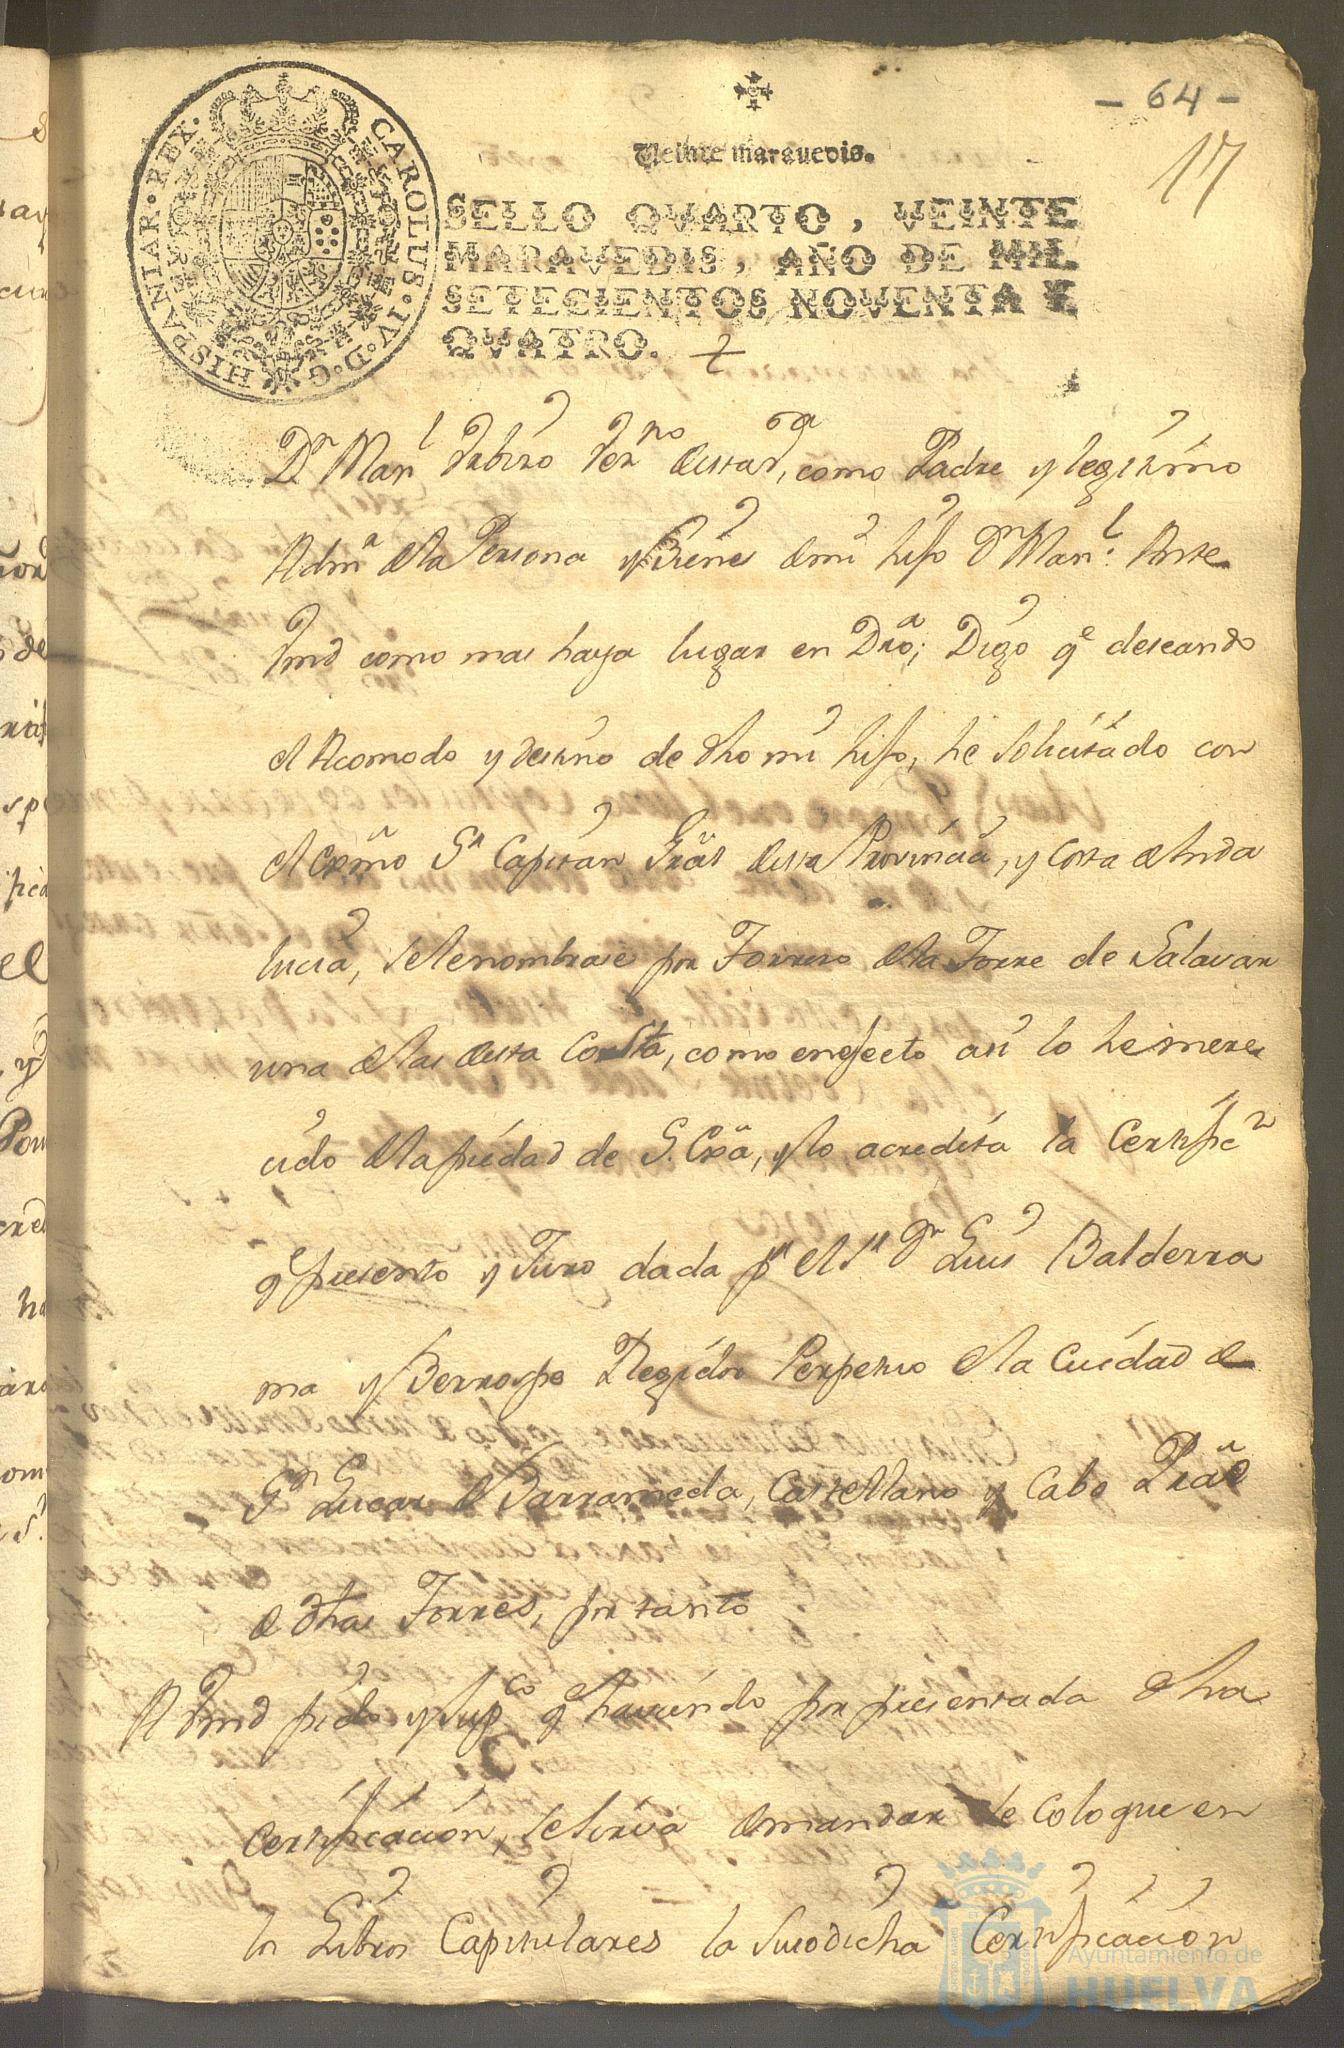 - 64 -
17
Veinte maravedis.
SELLO QVARTO, VEINTE
MARAVEDIS, AÑO DE MIL
SETECIENTOS NOVENTA Y
QVATRO.
CAROLUS·IV·D·G·HISPANIAR·REX·
Dn Manl Vezno destad, como Padre y legitimo
Admr dela Persona y Bienes de mi hijo Dn Manl. Ante
Vmd como mas haya lugar en Dro; Digo qe deseando
el Acomodo y destino de dho mi hijo, he solicitado con
el Exmo Sr Capitan Gral desta Provincia, y Costa de Anda
lucia, sele nombrase por Torrero dela Torre de Salavar
una delas desta Costa, como enefecto asi lo he mere
cido dela piedad de S. Exa, y lo acredita la Certific
qe presento y Juro dada pr el Sr Dn Luis Balderra
ma y Berrospe Regidor Perpetuo dela Ciudad de
Sn Lucar de Barrameda, Castellano y Cabo Pral
de dhas Torres, por tanto
A Vmd pido y supco qe haviendo por presentada dha
Certificación, se sirva demandar se coloque en
los Libros Capitulares la susodicha Certificación
Ayuntamiento de
HUELVA